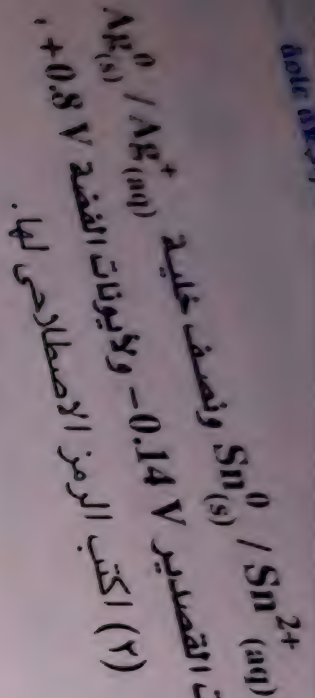 Sn⁰(s) / Sn²⁺(aq) ونصف خلية Ag⁰(s) / Ag⁺(aq)
القصدير −0.14 V ولأيونات الفضة +0.8 V ،
(٢) اكتب الرمز الاصطلاحى لها.